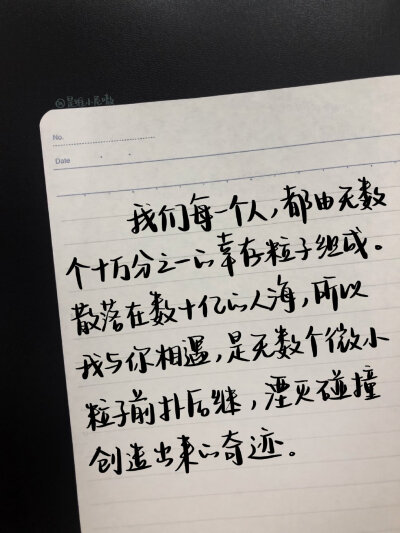 No.
Date
我们每一个人,都由无数
个十万分之一的幸存粒子组成。
散落在数十亿的人海,所以
我与你相遇,是无数个微小
粒子前扑后继,湮灭碰撞
创造出来的奇迹。